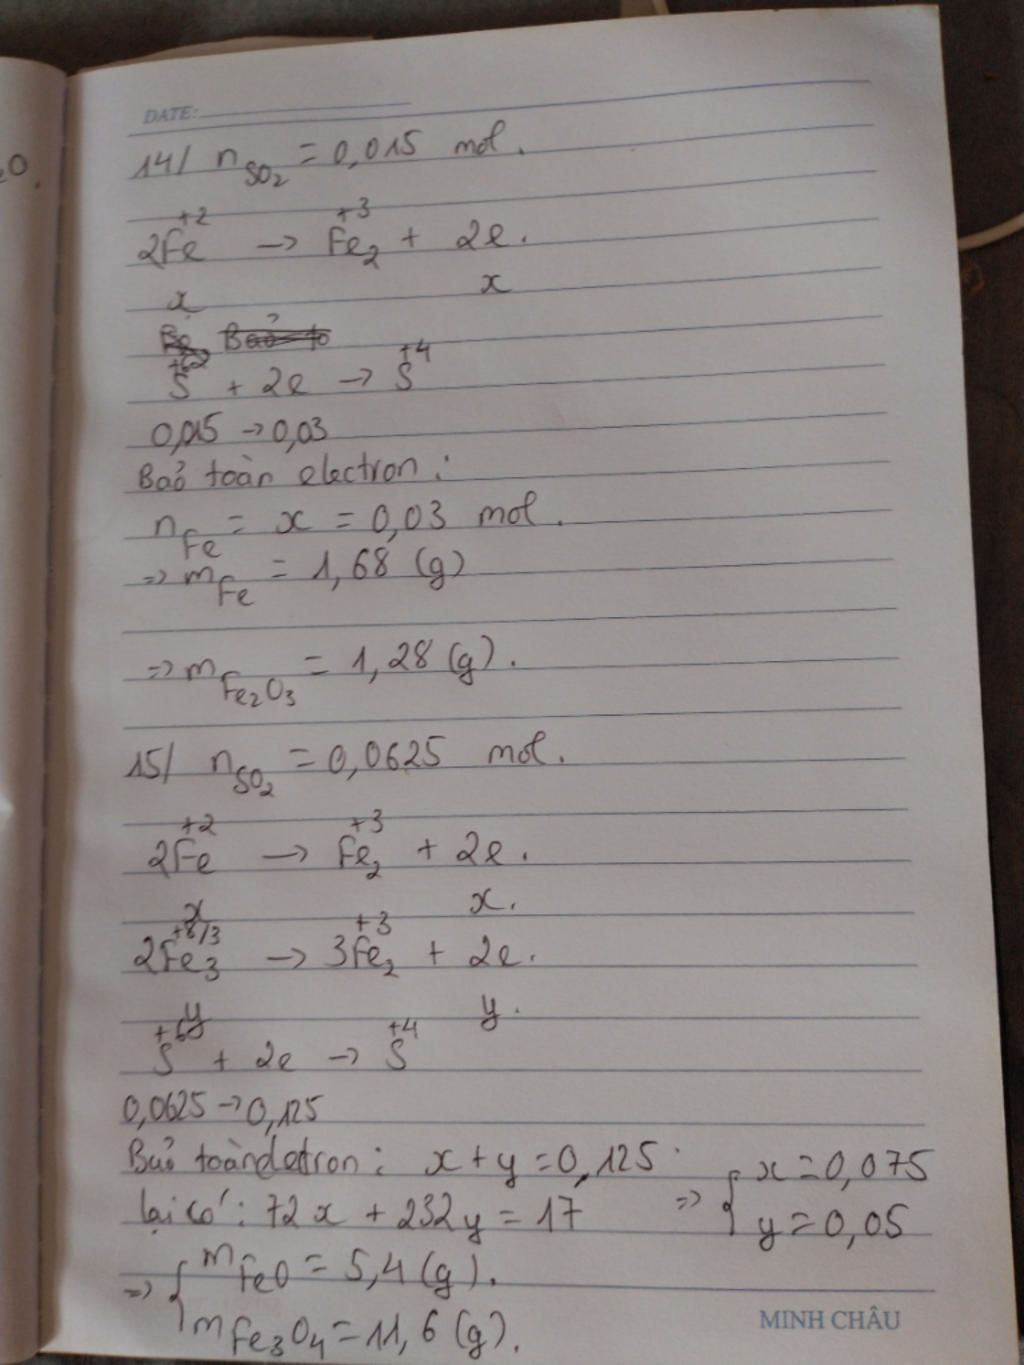 ₂O.
DATE:
14/ n_SO₂ = 0,015 mol.
+2 +3
2Fe → Fe₂ + 2e.
x x
+6 +4
S + 2e → S
0,015 → 0,03
Baỏ toàn electron:
n_Fe = x = 0,03 mol.
=> m_Fe = 1,68 (g)
=> m_Fe₂O₃ = 1,28 (g).
15/ n_SO₂ = 0,0625 mol.
+2 +3
2Fe → Fe₂ + 2e.
x x.
+8/3 +3
2Fe₃ → 3Fe₂ + 2e.
y y.
+6 +4
S + 2e → S
0,0625 → 0,125
Baỏ toàn electron: x + y = 0,125
lại có: 72x + 232y = 17 => { x = 0,075
y = 0,05
=> { m_FeO = 5,4 (g).
m_Fe₃O₄ = 11,6 (g).
MINH CHÂU